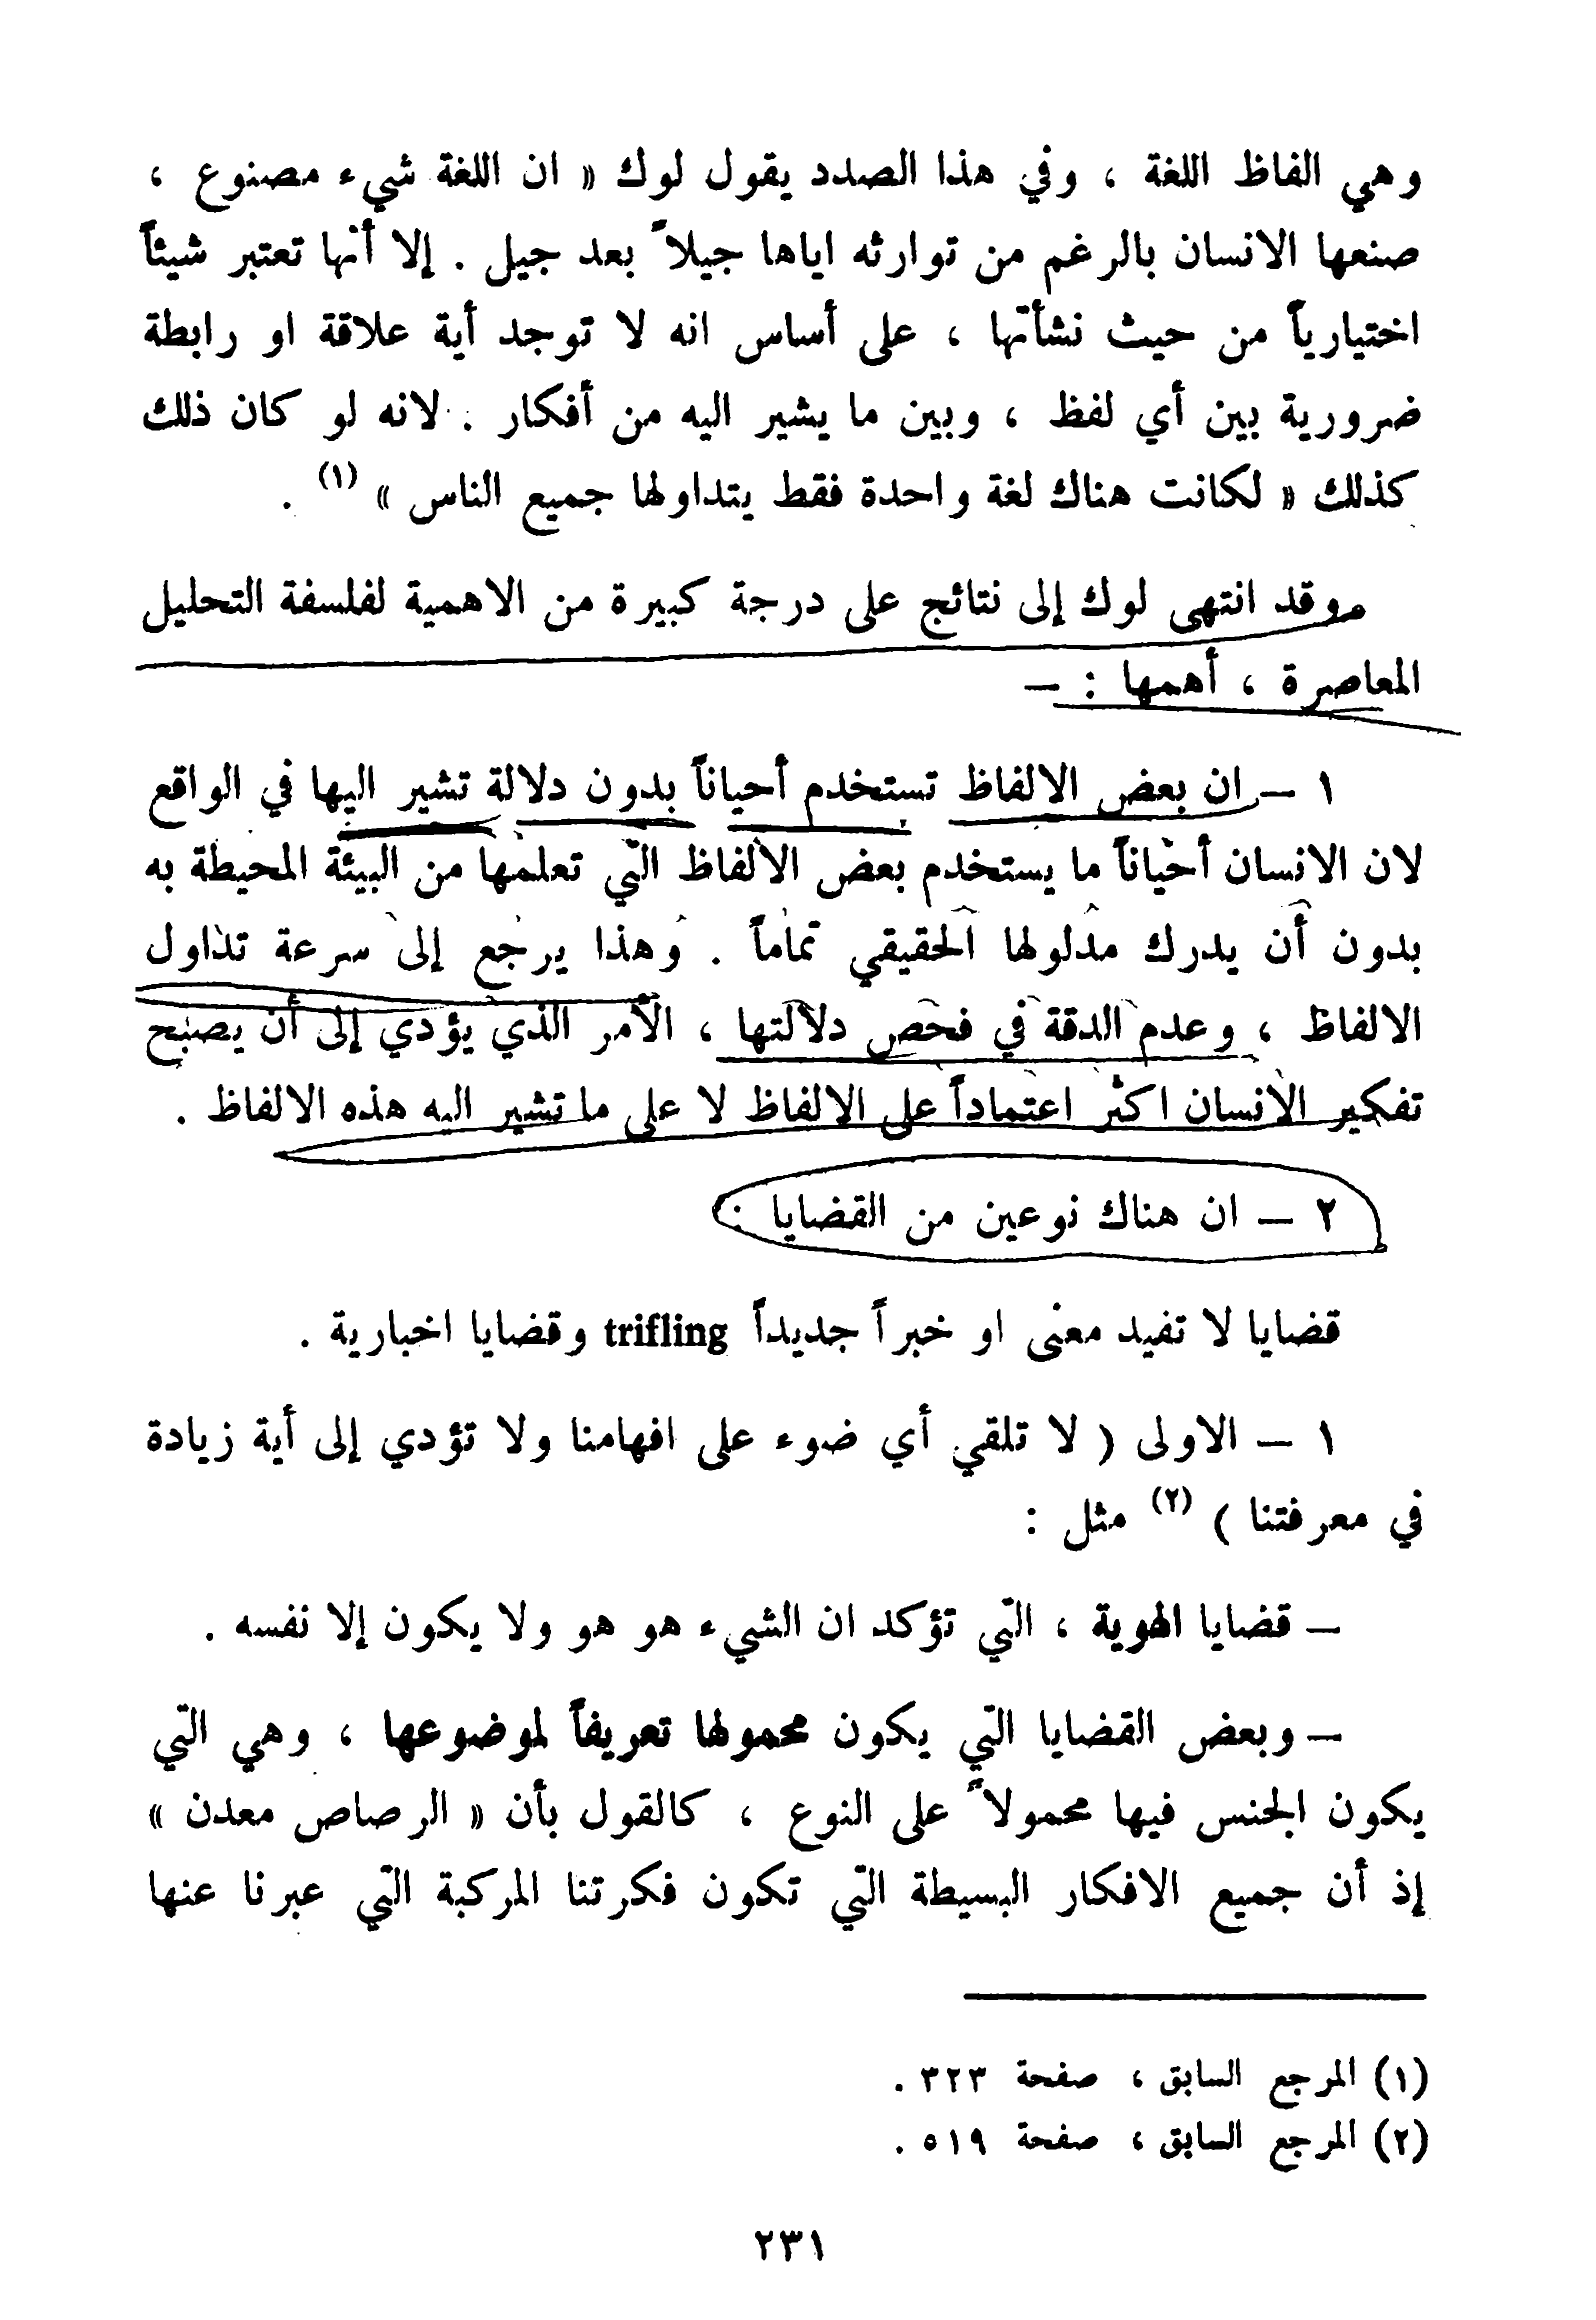 وهي الفاظ اللغة ، وفي هذا الصدد يقول لوك « ان اللغة شيء مصنوع ،
صنعها الانسان بالرغم من توارثه اياها جيلاً بعد جيل . إلا أنها تعتبر شيئاً
اختيارياً من حيث نشأتها ، على أساس انه لا توجد أية علاقة او رابطة
ضرورية بين أي لفظ ، وبين ما يشير اليه من أفكار . لانه لو كان ذلك
كذلك « لكانت هناك لغة واحدة فقط يتداولها جميع الناس » (١) .
وقد انتهى لوك إلى نتائج على درجة كبيرة من الاهمية لفلسفة التحليل
المعاصرة ، أهمها : —
١ — ان بعض الالفاظ تستخدم أحياناً بدون دلالة تشير اليها في الواقع
لان الانسان أحياناً ما يستخدم بعض الألفاظ التي تعلمها من البيئة المحيطة به
بدون أن يدرك مدلولها الحقيقي تماماً . وهذا يرجع إلى سرعة تداول
الالفاظ ، وعدم الدقة في فحص دلالتها ، الأمر الذي يؤدي إلى أن يصبح
تفكير الانسان اكثر اعتماداً على الالفاظ لا على ما تشير اليه هذه الالفاظ .
٢ — ان هناك نوعين من القضايا :
قضايا لا تفيد معنى او خبراً جديداً trifling وقضايا اخبارية .
١ — الاولى ( لا تلقي أي ضوء على افهامنا ولا تؤدي إلى أية زيادة
في معرفتنا ) (٢) مثل :
— قضايا الهوية ، التي تؤكد ان الشيء هو هو ولا يكون إلا نفسه .
— وبعض القضايا التي يكون محمولها تعريفاً لموضوعها ، وهي التي
يكون الجنس فيها محمولاً على النوع ، كالقول بأن « الرصاص معدن »
إذ أن جميع الافكار البسيطة التي تكون فكرتنا المركبة التي عبرنا عنها
(١) المرجع السابق ، صفحة ٣٢٣ .
(٢) المرجع السابق ، صفحة ٥١٩ .
٢٣١